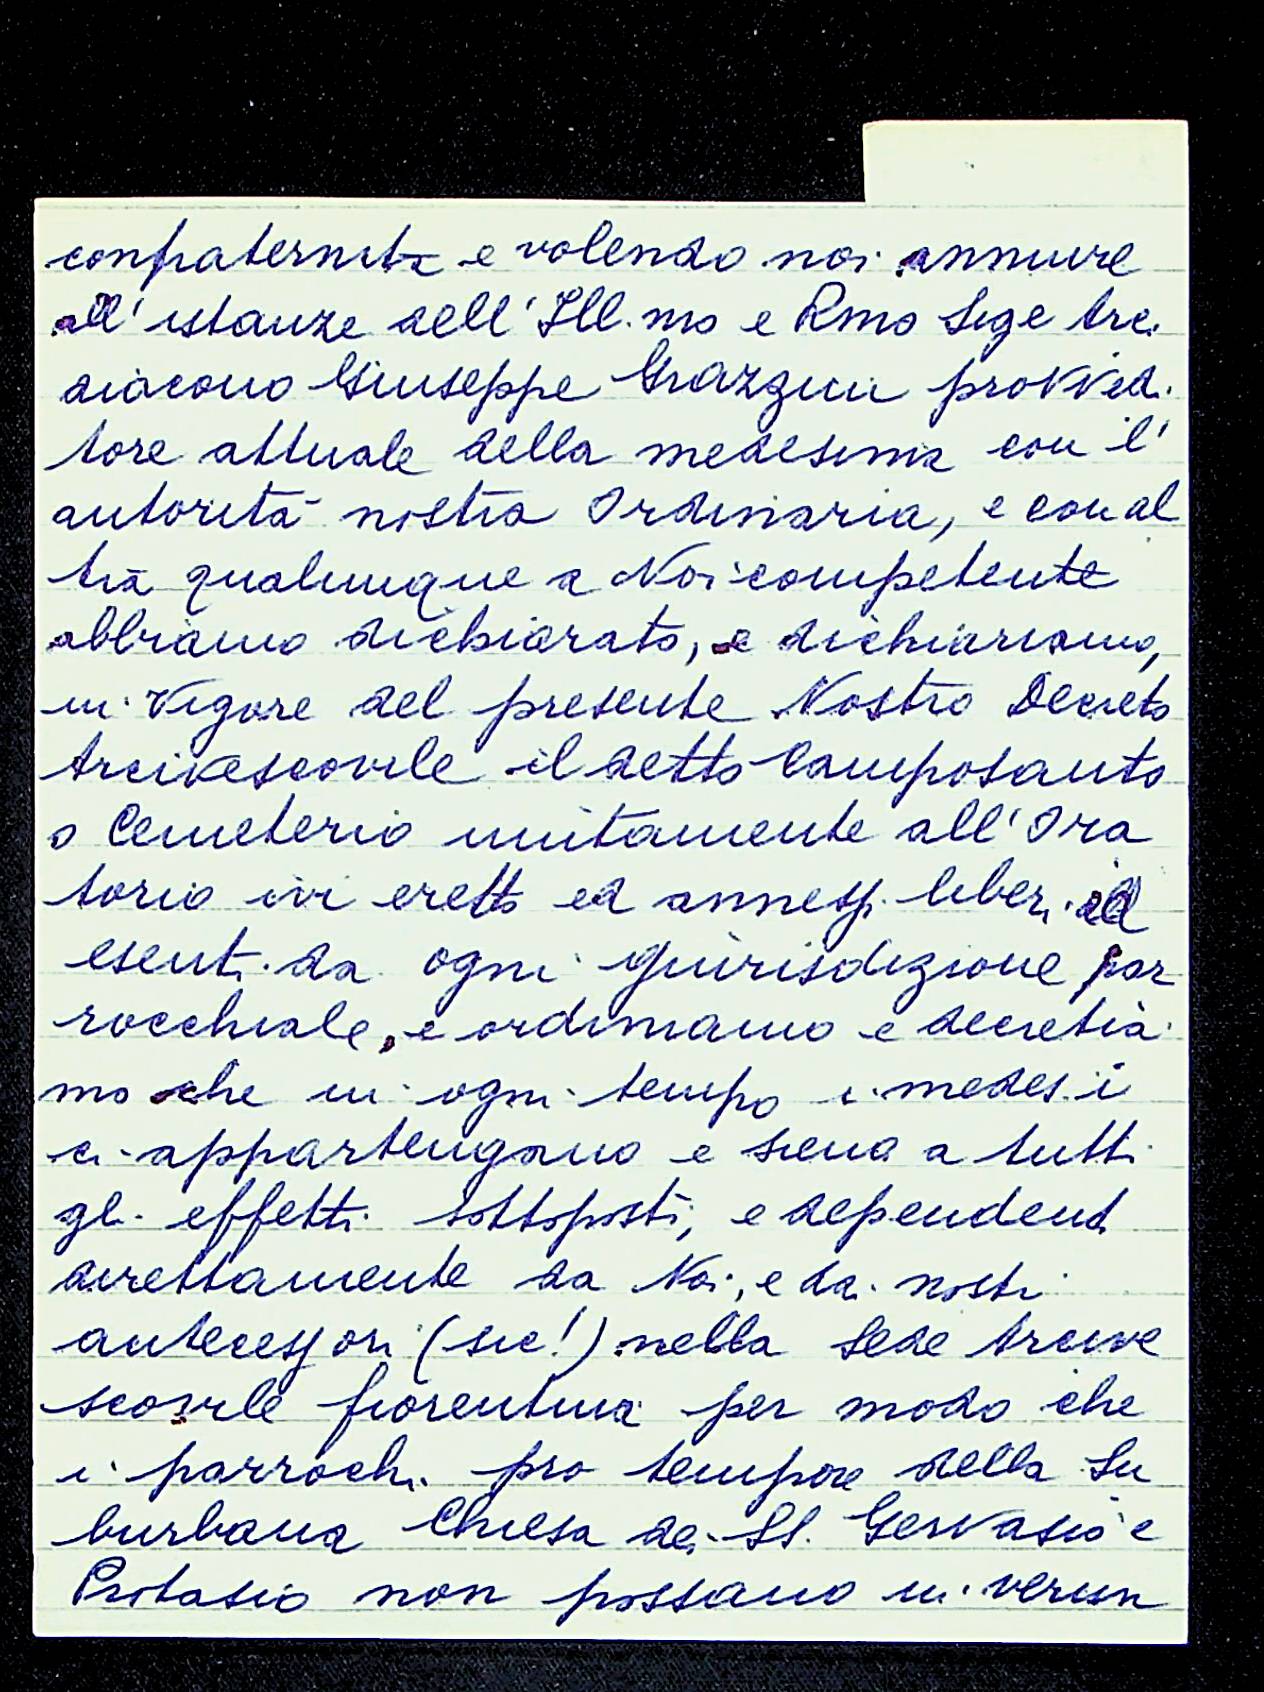 confraternita e volendo noi annuire
all'istanze dell'Ill.mo e Rmo Sige Arci
diacono Giuseppe Grazzini provvedi
tore attuale della medesima con l'
autorità nostra Ordinaria, e con al
tra qualunque a Noi competente
abbiamo dichiarato, e dichiariamo,
in vigore del presente Nostro Decreto
Arcivescovile il detto Camposanto
o Cemeterio unitamente all'Ora
torio ivi eretto ed annessi liberi ed
esenti da ogni giurisdizione par
rocchiale, e ordiniamo e decretia
mo che in ogni tempo i medes.i
ci appartengano e sieno a tutti
gli effetti sottoposti, e dependenti
direttamente da Noi, e dai nostri
antecessori (sic!) nella Sede Arcive
scovile fiorentina per modo che
i parrochi pro tempore della Su
burbana Chiesa dei SS. Gervasio e
Protasio non possano in verun